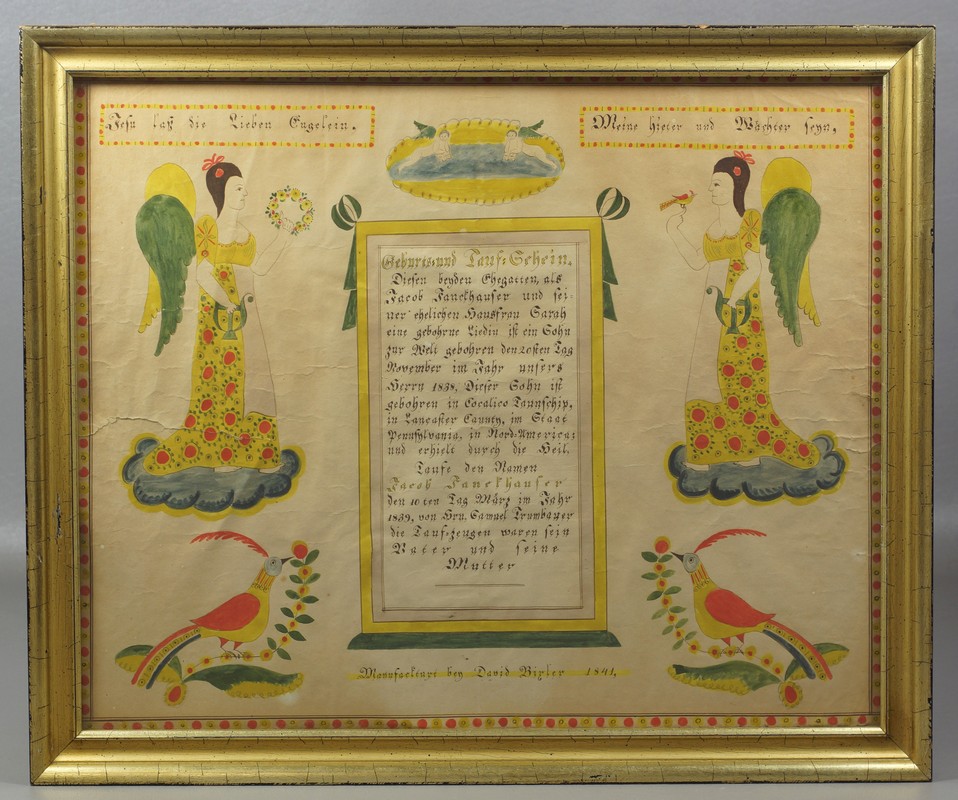 Jesu laß die Lieben Engelein,
Meine hieter und Wächter seyn,
Geburts und Tauf-Schein.
Diesen beyden Ehegatten, als
Jacob Fanckhauser und sei-
ner ehelichen Hausfrau Sarah
eine gebohrne Liedin ist ein Sohn
zur Welt gebohren den 20sten Tag
November im Jahr unsers
Herrn 1838, Dieser Sohn ist
gebohren in Cocalico Taunschip,
in Lancaster Caunty, im Staat
Pennsylvania, in Nord-America;
und erhielt durch die Heil.
Taufe den Namen
Jacob Fanckhauser
den 10ten Tag März im Jahr
1839, von Hrn. Samuel Trumbauer
die Tauf-zeugen waren sein
Vater und seine
Mutter
Manufacktirt bey David Bixler 1841,